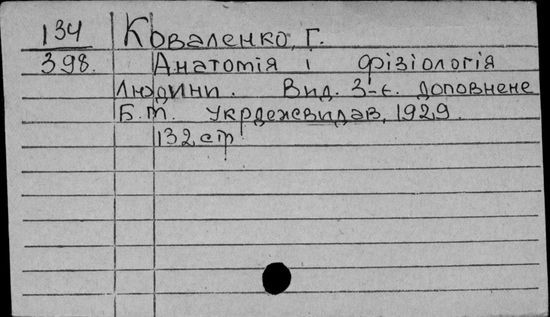 134 Коваленко, Г.
398. Анатомія і фізіологія
людини. Вид. 3-є. доповнене
Б.М. Укрдежвидав, 1929.
132 стр